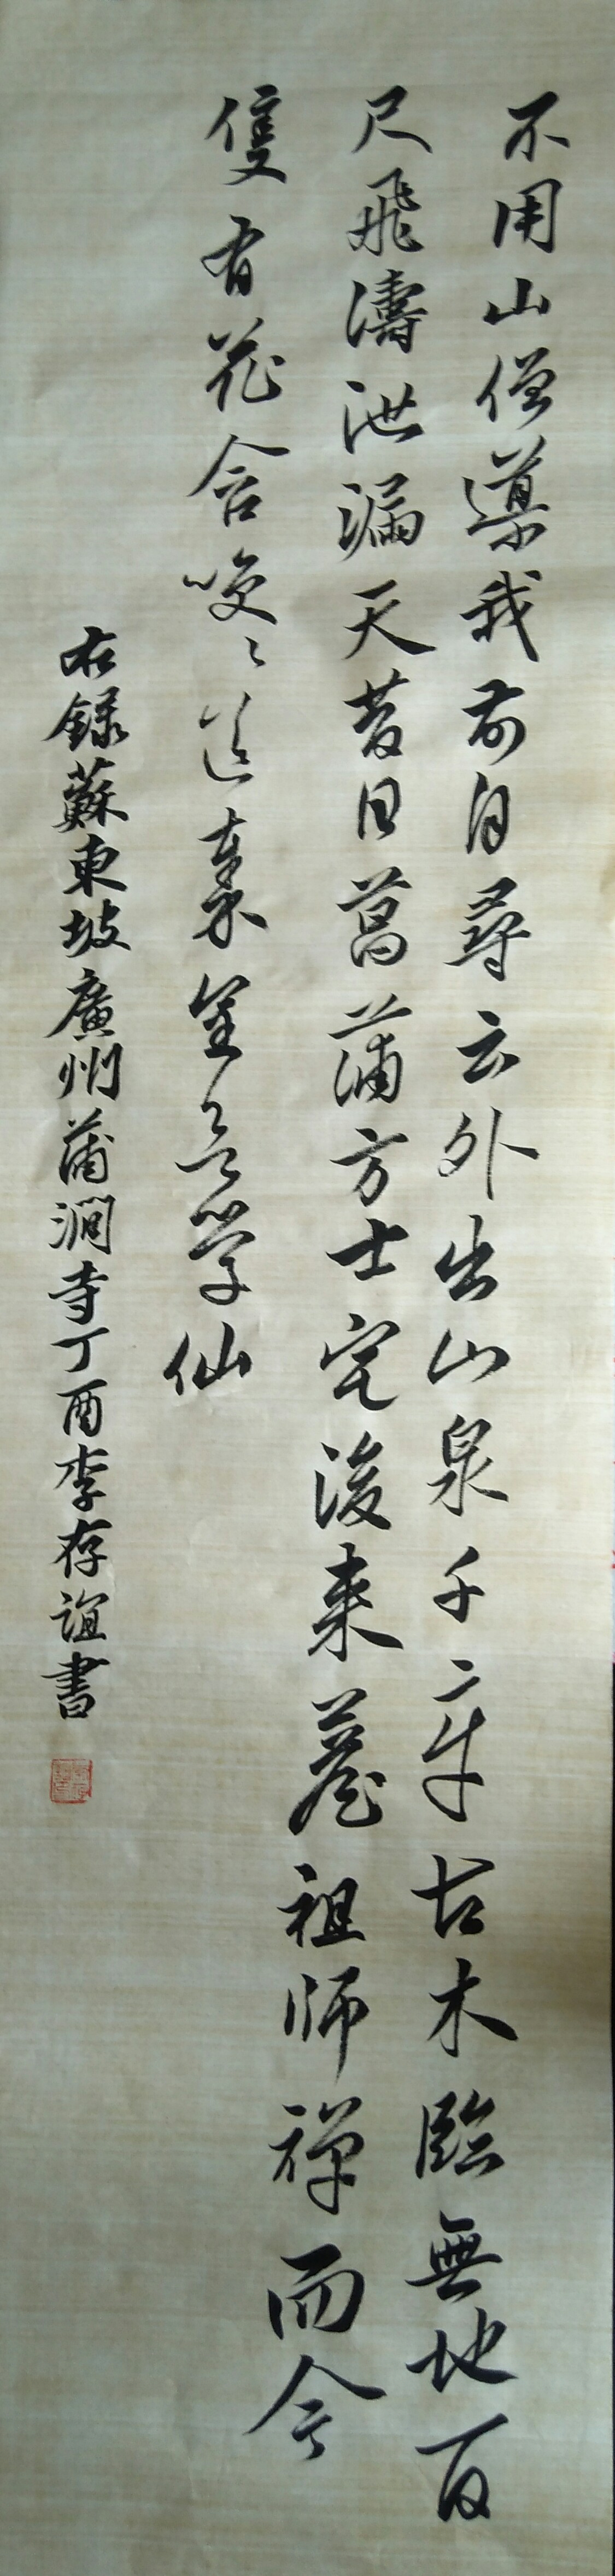 不用山僧導我前自尋云外出山泉千章古木臨無地百
尺飛濤泄漏天昔日菖蒲方士宅後来薝祖师禅而今
隻有花含咲々道秦皇学仙
右録蘇東坡廣州蒲澗寺丁酉李存誼書